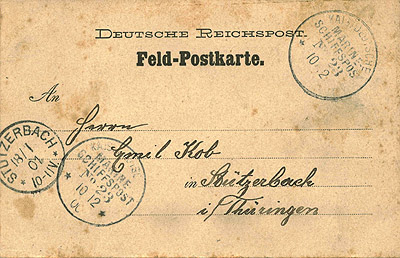 DEUTSCHE REICHSPOST.
Feld-Postkarte.
KAIS. DEUTSCHE
MARINE-
SCHIFFSPOST
No 23
10/12
An
Herrn
Emil Kob
in Stützerbach
i/Thüringen
STÜTZERBACH
18/1
01
10-11V.
KAIS. DEUTSCHE
MARINE-
SCHIFFSPOST
No 23
10/12
00